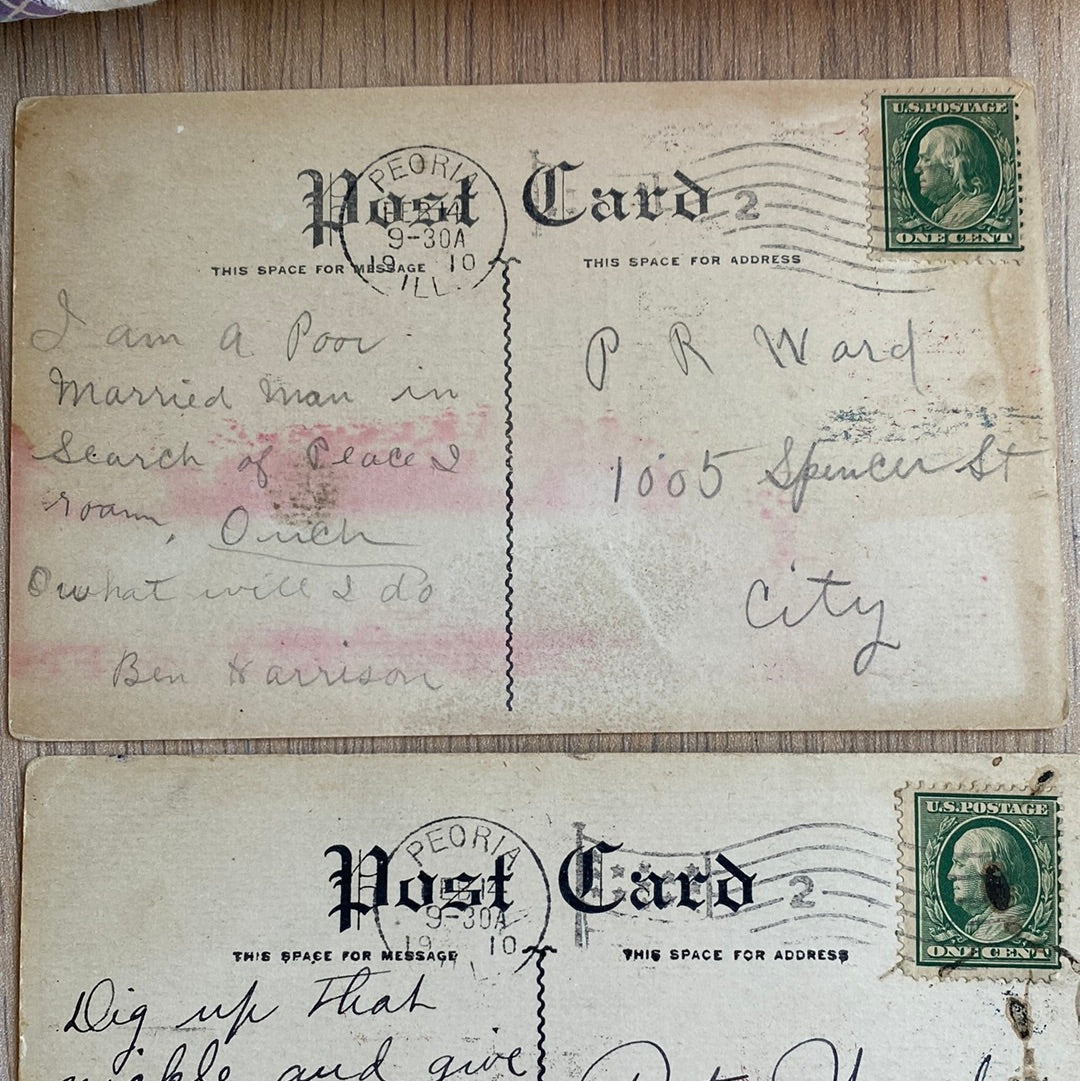 U.S.POSTAGE
ONE CENT
PEORIA
FEB 14
9-30A
19 10
ILL.
Post Card
2
THIS SPACE FOR MESSAGE
THIS SPACE FOR ADDRESS
I am a Poor
Married Man in
Search of Peace I
roam, Ouch
O what will I do
Ben Harrison
P R Ward
1005 Spencer St
City
U.S.POSTAGE
ONE CENT
PEORIA
9-30A
19 10
Post Card
2
THIS SPACE FOR MESSAGE
THIS SPACE FOR ADDRESS
Dig up That
nickle and give